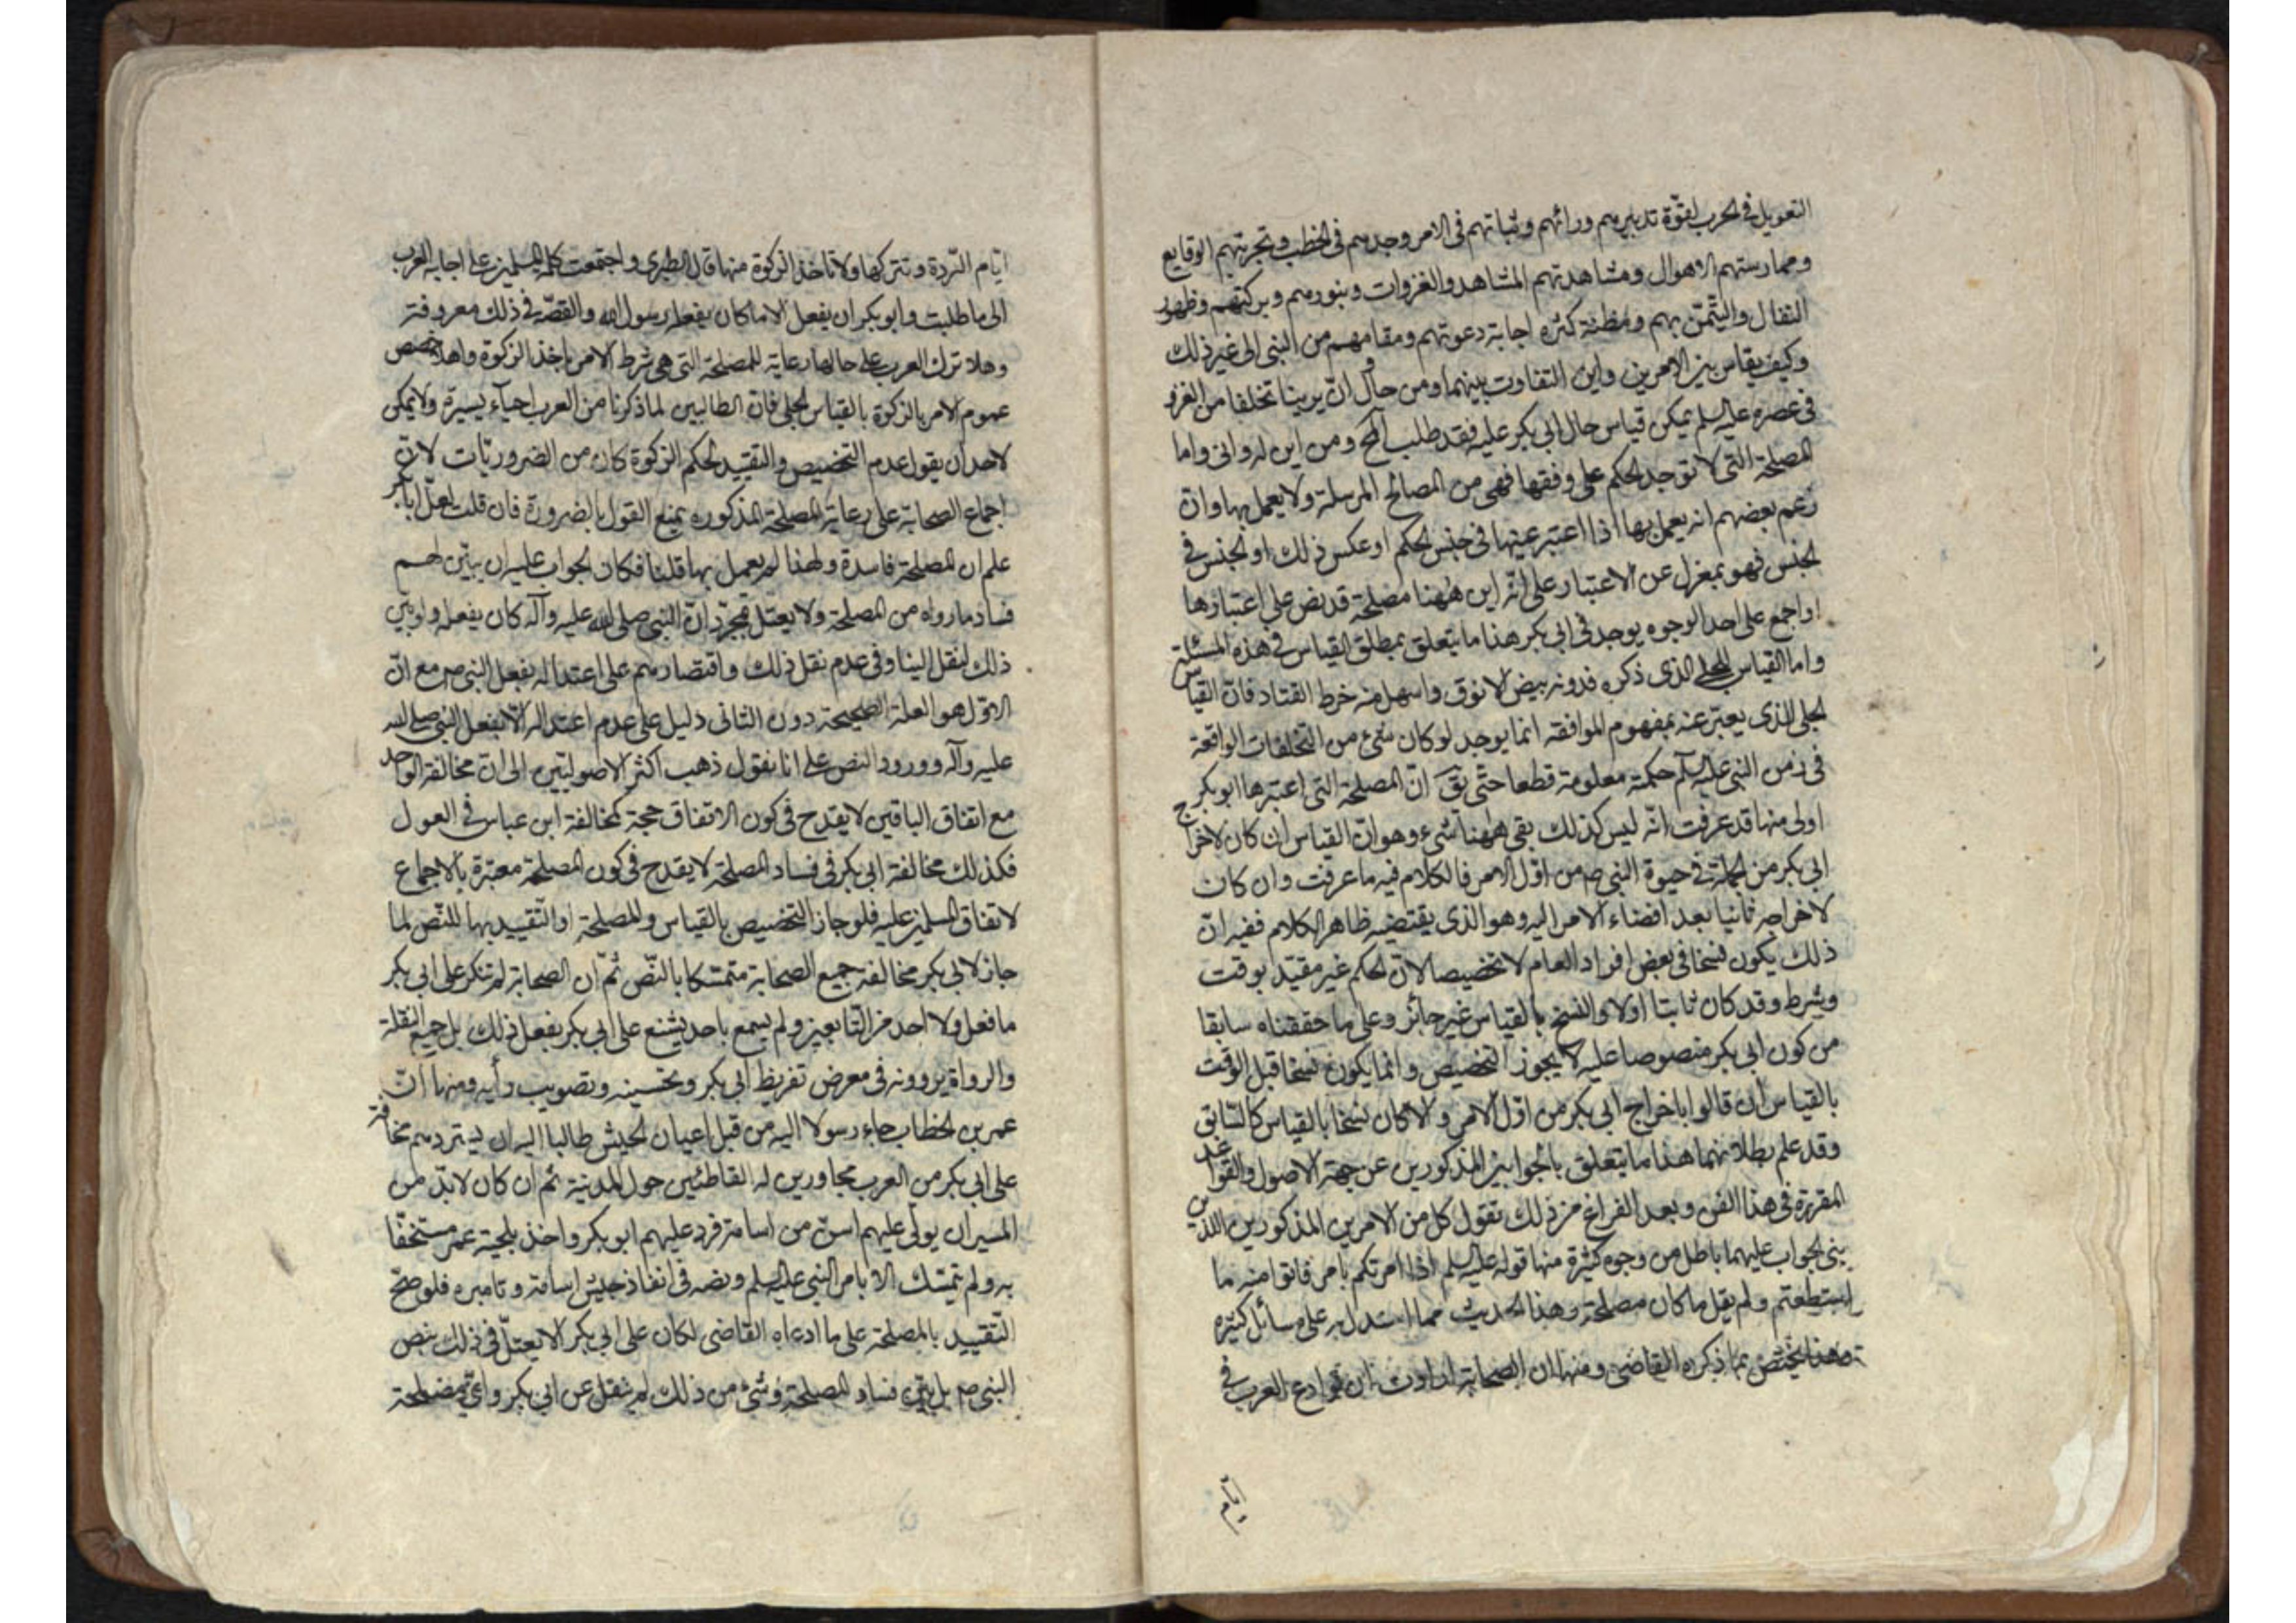 التعويل فى الحرب لقوّة تدبيرهم ورائهم وثباتهم فى الامر وجدهم فى الخطب وتجربتهم الوقايع
وممارستهم الاهوال ومشاهدتهم المشاهد والغزوات وبنورهم وبركتهم وظهور
التفال والتيّمن بهم ومظنة كثره اجابة دعوتهم ومقامهم من النبى الى غير ذلك
وكيف يقاس بين الامرين واين التفاوت بينهما ومن حاول ان يرينا تخلفا من الغزو
فى عصره عليه السلم يمكن قياس حال ابى بكر عليه فقد طلب المح ومن اين له وانى واما
المصلحة التى لا توجد الحكم على وفقها فهى من المصالح المرسلة ولا يعمل بها وان
زعم بعضهم انه يعمل بها اذا اعتبر عينها فى جنس الحكم او عكس ذلك او الجنس فى
الجنس فهو بمغزل عن الاعتبار على انّه اين ههنا مصلحة قد نص على اعتبارها
او اجمع على احد الوجوه يوجد فى ابى بكر هذا ما يتعلق بمطلق القياس فى هذه المسئلة
واما القياس الجلى الذى ذكره فدونه بيض الانوق واسهل منه خرط القتاد فان القياس
الجلى الذى يعبّر عنه بمفهوم الموافقه انما يوجد لو كان شئ من التخلفات الواقعة
فى زمن النبى عليه السلم حكمة معلومة قطعا حتى يقَ انّ المصلحة التى اعتبرها ابو بكر
اولى منها قد عرفت انّه ليس كذلك بقى ههنا شىء وهو انّ القياس ان كان لاخراج
ابى بكر من الجملة فى حيوة النبى ص من اوّل الامر فالكلام فيه ما عرفت وان كان
لاخراجه ثانيا بعد افضاء الامر اليه وهو الذى يقتضيه ظاهر الكلام ففيه انّ
ذلك يكون نسخا فى بعض افراد العام لا تخصيصا لانّ الحكم غير مقيّد بوقت
وشرط وقد كان ثابتا اولا والنسخ بالقياس غير جائز وعلى ما حققناه سابقا
من كون ابى بكر منصوصا عليه لا يجوز التخصيص وانما يكون نسخا قبل الوقت
بالقياس ان قالوا باخراج ابى بكر من اوّل الامر والا كان نسخا بالقياس كالسّابق
وقد علم بطلانهما هذا ما يتعلق بالجوابين المذكورين عن جهة الاصول والقواعد
المقررة فى هذا الفن وبعد الفراغ من ذلك نقول كل من الامرين المذكورين اللذين
بنى الجواب عليهما باطل من وجوه كثيرة منها قوله عليه السلم اذا امرتكم بامر فاتوا منه ما
استطعتم ولم يقل ما كان مصلحة وهذا الحديث مما استدل به على مسائل كثيره
وهذا يختص بما ذكره القاضى ومنها ان الصحابة ارادوا ان توادع العرب فى
ايّام
ايّام الرّدة وتتركها ولا تاخذ الزكوة منها قال الطبرى واجتمعت كلمة المسلمين على اجابة العرب
الى ما طلبت وابو بكر ان يفعل الا ما كان يفعله رسول الله والقصّة فى ذلك معروفة
وهلا ترك العرب على حالها رعاية للمصلحة التى هى شرط الامر باخذ الزكوة وهلا خصص
عموم الامر بالزكوة بالقياس الجلى فانّ الطالبين لما ذكرنا من العرب احياء يسيرة ولا يمكن
لاحد ان يقول عدم التخصيص والتقييد لحكم الزكوة كان من الضروريّات لانّ
اجماع الصحابة على رعاية المصلحة المذكوره يمنع القول بالضرورة فان قلت لعلّ ابا بكر
علم ان المصلحة فاسدة ولهذا لم يعمل بها قلنا فكان الجواب عليه ان يبيّن لهم
فساد ما رواه من المصلحة ولا يعتل بمجرّد انّ النبى صلى الله عليه وآله كان يفعله ولو بيّن
ذلك لنقل الينا وفى عدم نقل ذلك واقتصارهم على اعتداله بفعل النبى ص مع انّ
الاوّل هو العلة الصحيحة دون الثانى دليل على عدم اعتداله الّا بفعل النبى صلى الله
عليه وآله وورود النص على انا نقول ذهب اكثر الاصوليّين الى انّ مخالفة الواحد
مع اتفاق الباقين لا يقدح فى كون الاتفاق حجة كمخالفة ابن عباس فى العول
فكذلك مخالفة ابى بكر فى فساد المصلحة لا يقدح فى كون المصلحة معتبرة بالاجماع
لاتفاق المسلمين عليه فلو جاز التخصيص بالقياس والمصلحة او التّقييد بها للنّص لما
جاز لابى بكر مخالفة جميع الصحابة متمسّكا بالنّص ثمّ ان الصحابة لم تنكر على ابى بكر
ما فعل ولا احد من التّابعين ولم يسمع باحد يشنع على ابى بكر بفعل ذلك بل جميع النقلة
والرواة يروونه فى معرض تقريظ ابى بكر وتحسينه وتصويب رأيه ومنها انّ
عمر بن الخطاب جاء رسولا اليه من قبل اعيان الجيش طالبا اليه ان يستردهم مخافة
على ابى بكر من العرب مجاورين له القاطنين حول المدينة ثم ان كان لابدّ من
المسير ان يولّى عليهم اسنّ من اسامة فرد عليهم ابو بكر واخذ بلحية عمر مستخفّا
به ولم يتمسّك الا بامر النبى عليه السلم ونصه فى انفاذ جيش اسامة وتاميره فلو صحّ
التّقييد بالمصلحة على ما ادعاه القاضى لكان على ابى بكر الا يعتلّ فى ذلك بنص
النبى ص بل يبيّن فساد المصلحة وشئ من ذلك لم ينقل عن ابى بكر واىّ مصلحة